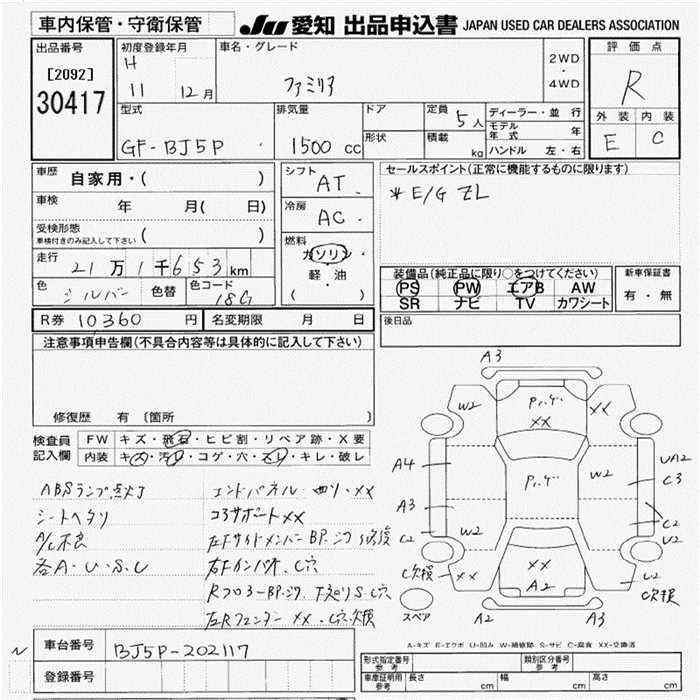 車内保管・守衛保管
JU 愛知 出品申込書 JAPAN USED CAR DEALERS ASSOCIATION
出品番号
[2092]
30417
初度登録年月
H
11 12月
車名・グレード
ファミリア
2WD
・
4WD
評価点
R
外装 内装
E C
型式
GF-BJ5P
排気量
1500 cc
ドア
形状
定員
5人
積載
kg
ディーラー・並行
モデル年式 年
ハンドル 左・右
車歴
自家用・( )
車検
年 月( 日)
受検形態
車検付きのみ記入して下さい ( )
走行
21万1千653km
色
シルバー
色替
色コード
18G
シフト
AT
冷房
AC
燃料
ガソリン
軽・油
( )
セールスポイント(正常に機能するものに限ります)
*E/G ZL
装備品(純正品に限り○をつけてください)
PS PW エアB AW
SR ナビ TV カワシート
新車保証書
有・無
R券 10360 円
名変期限 月 日
後日品
注意事項申告欄(不具合内容等は具体的に記入して下さい)
修復歴 有 〔箇所 〕
検査員記入欄
FW キズ・飛石・ヒビ割・リペア跡・X要
内装 キズ・汚レ・コゲ・穴・スレ・キレ・破レ
ABSランプ点灯
シートヘタリ
A/C不良
各A・U・S・C
エンドパネル・XX
コアサポートXX
左FサイドメンバーBP
C穴
RフロアーBP
左Rフェンダー XX・C穴欠損
A3
W2
XX
XX
A4
W2
UA2
C3
A3
C2
W2
C2
C欠損
XX
XX
A2
U2
C欠損
スペア
A2
A3
A-キズ E-エクボ U-凹み W-補修跡 S-サビ C-腐食 XX-交換済
車台番号
BJ5P-202117
登録番号
型式指定番号
参考
類別区分番号
参考
車庫証明用
参考
長さ cm
幅 cm
高さ cm